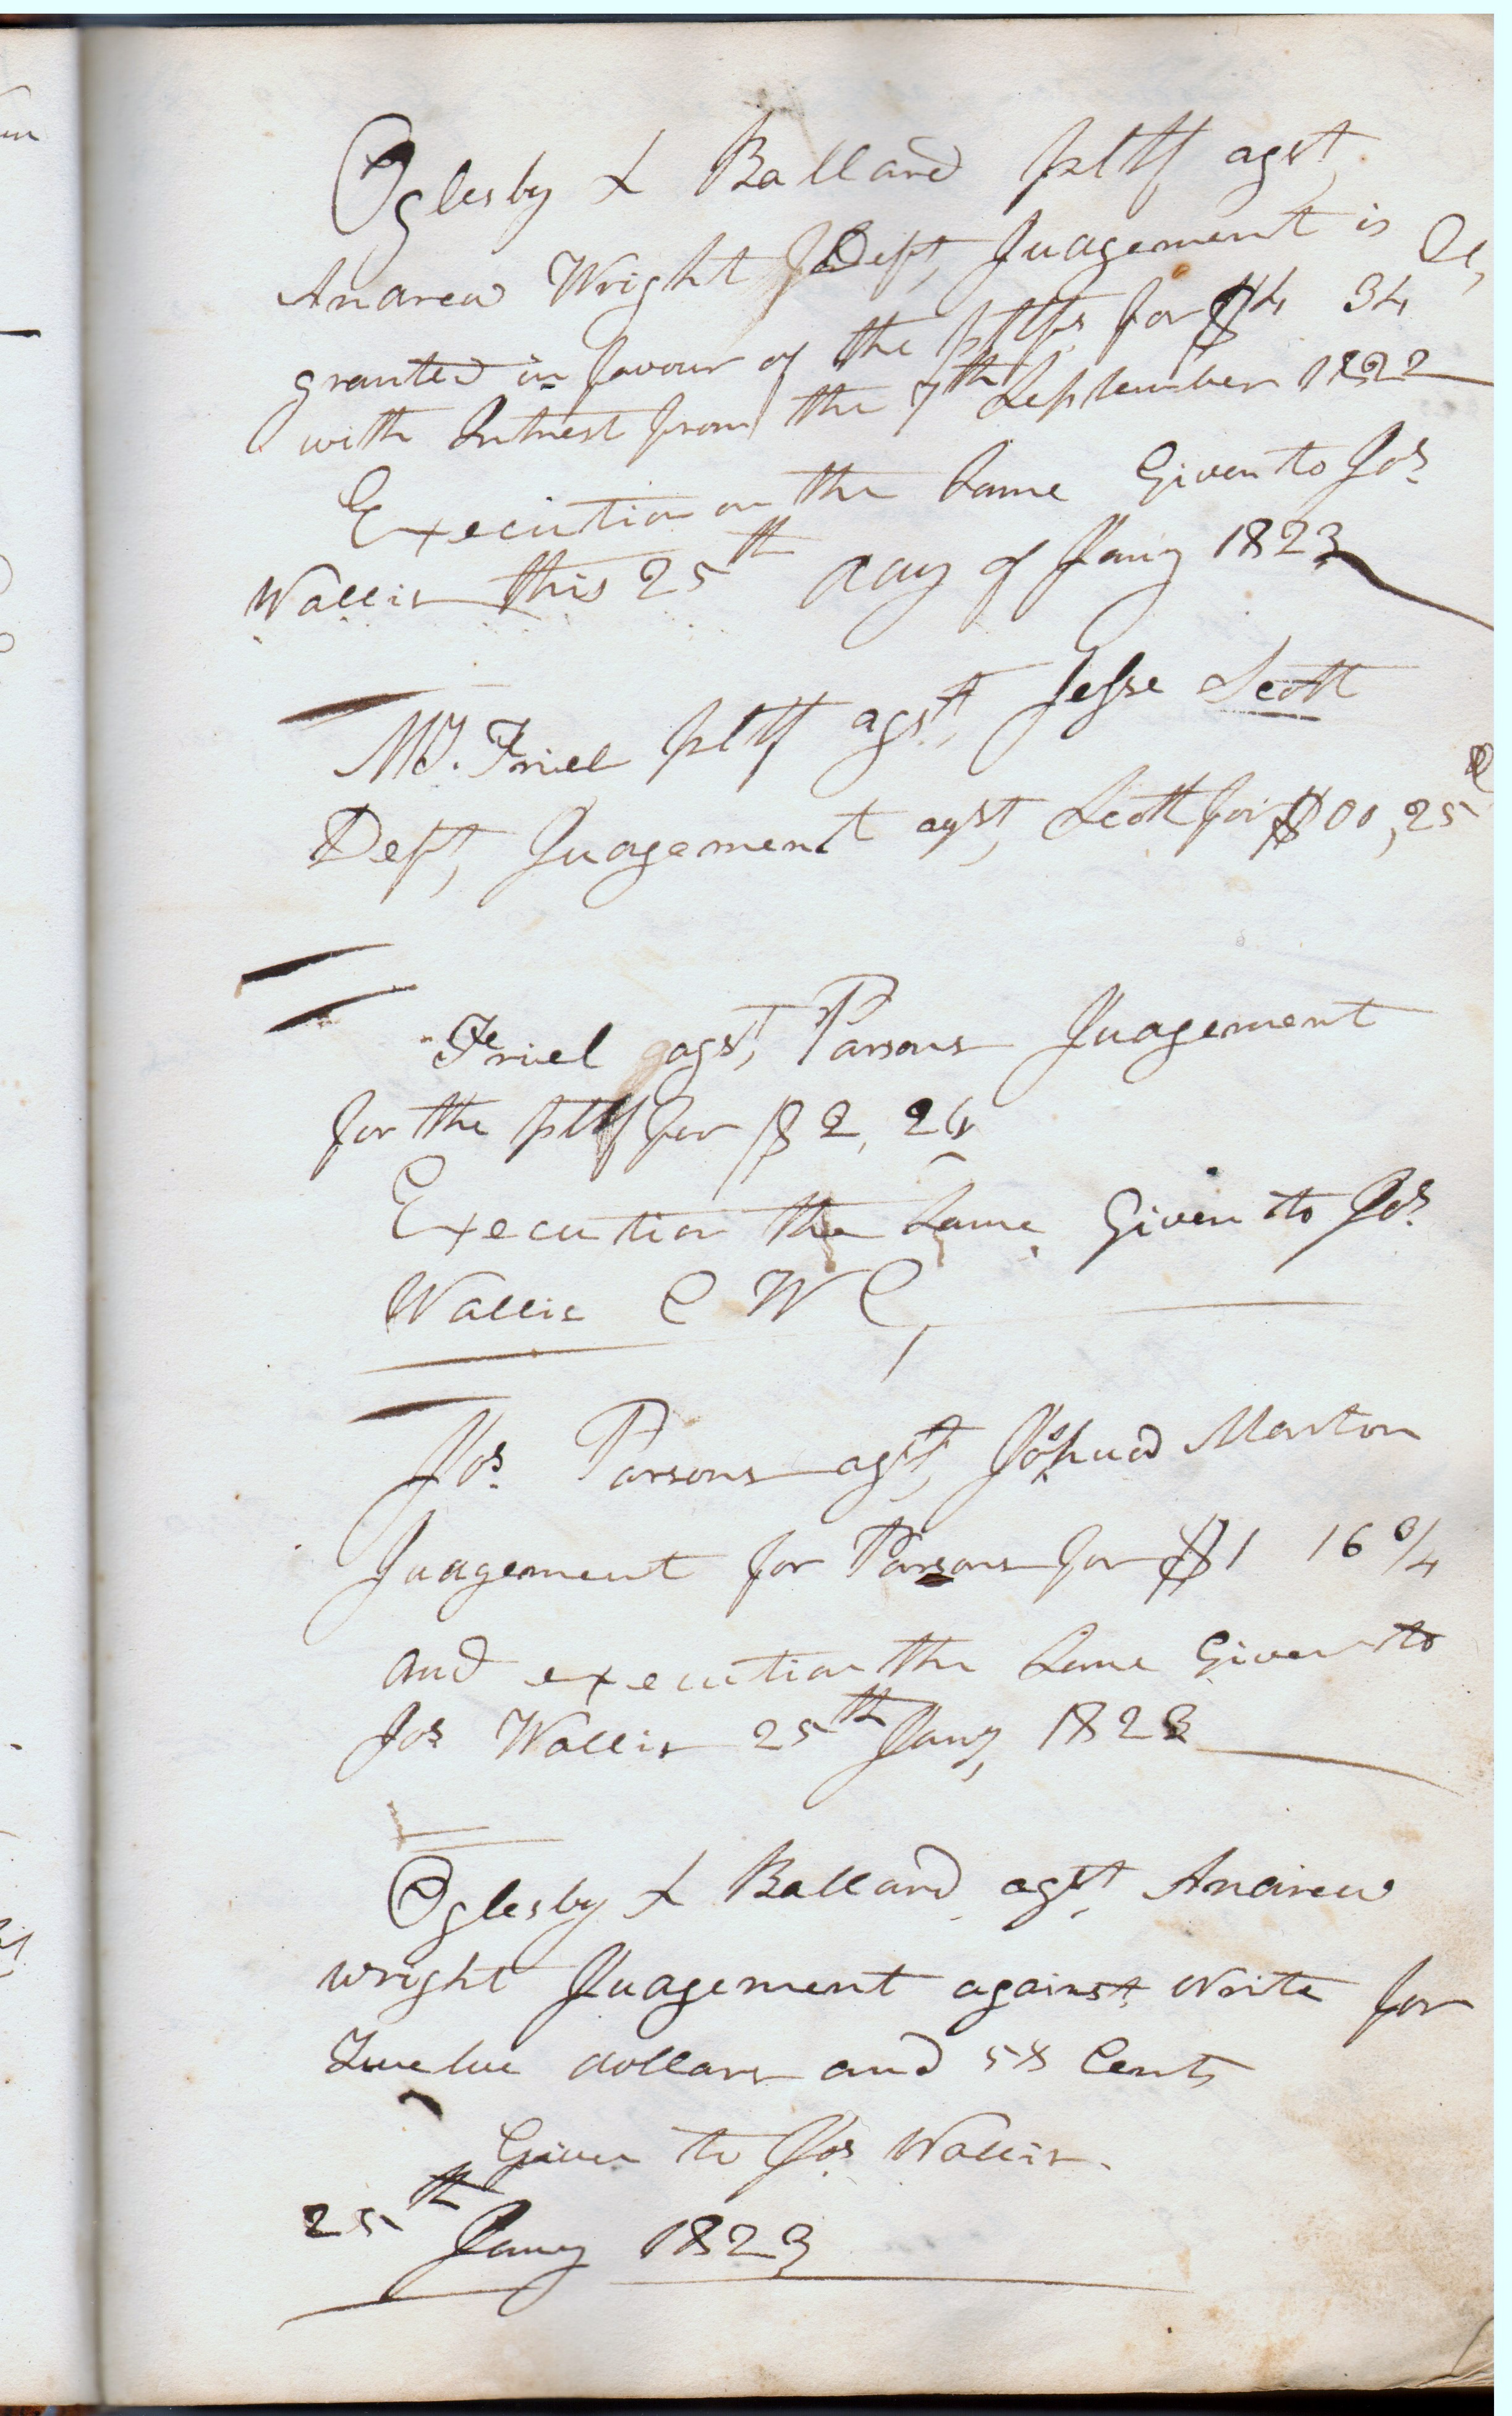 Oglesby & Ballard pltff agst,
Andrew Wright Deft, Judgement is
granted in favour of the pltfs for $4 34
with Intrest from the 7th September 1822
Execution on the Same Given to Jos
Wallis this 25th day of Jany 1823
M. Friel pltff agst, Jesse Scott
Deft, Judgement agst, Scott for $00,25
Friel agst, Parsons Judgement
for the pltff for $2,24
Execution the Same Given to Jos
Wallis C W C,
Jos Parsons agst, Joshua Marton
Judgement for Parsons for $1 16 3/4
and execution the Same Given to
Jos Wallis 25th Jany, 1823
Oglesby & Ballard agst, Andrew
wright Judgement against Write for
Twelve dollars and 58 Cents
Given to Jos Wallis.
25th
Jany 1823